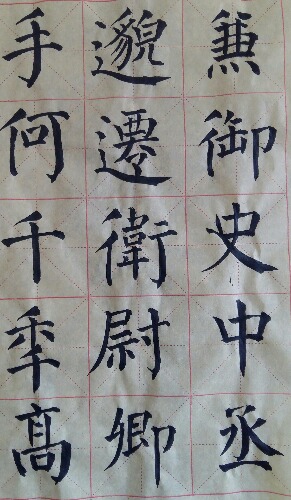 手何千秊髙
邈遷衛尉卿
兼御史中丞